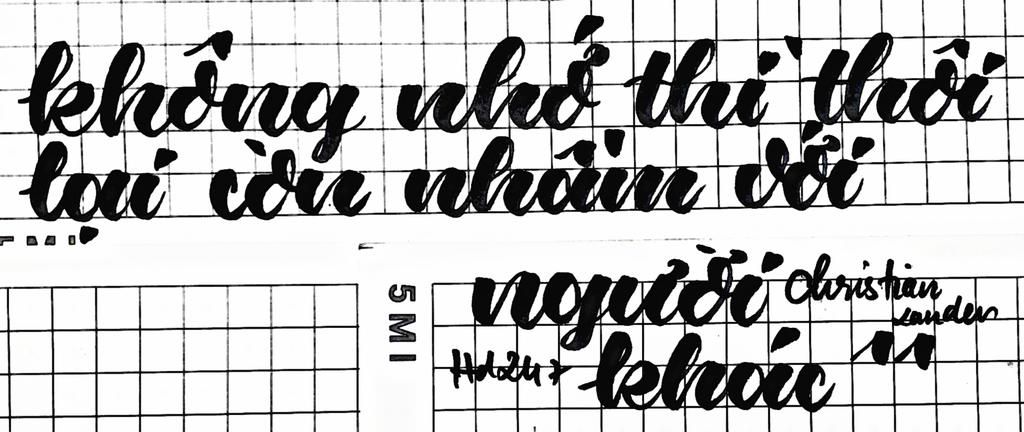 không nhớ thì thôi
lại còn nhầm với
người
khác "
Christian
xanden
Hd247
5 M I